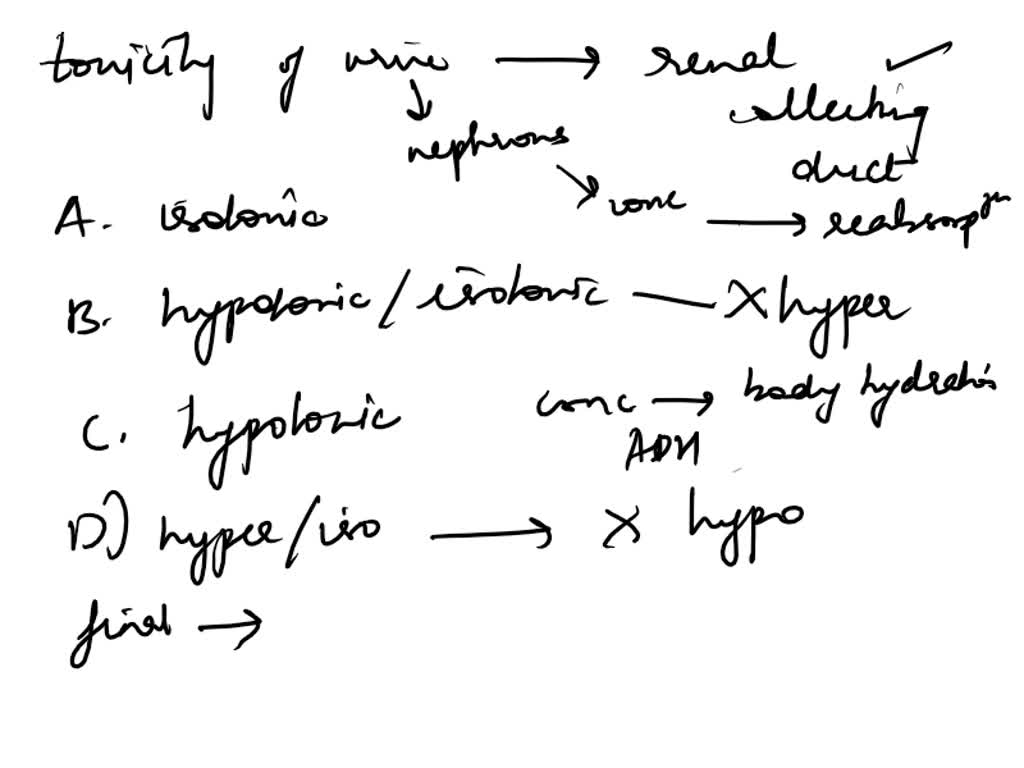 tonicity of urine → renal ✓
collecting
nephrons
duct
A. isotonic
conc → reabsorpⁿ
B. hypotonic / isotonic — X hyper
C. hypotonic
conc → body hydration
ADH
D) hyper / iso → X hypo
final →